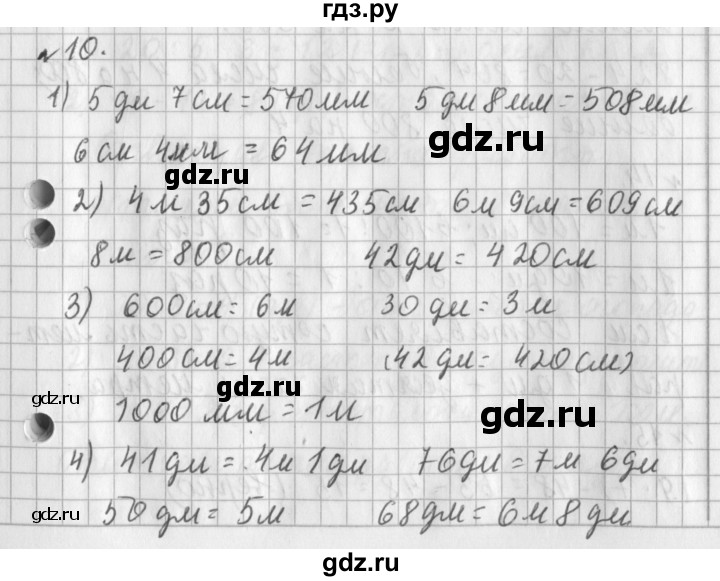 гдз.ру
№10.
1) 5 дм 7 см = 570 мм 5 дм 8 мм = 508 мм
gdz.ru
6 см 4 мм = 64 мм
gdz.ru
2) 4 м 35 см = 435 см 6 м 9 см = 609 см
8 м = 800 см 42 дм = 420 см
3) 600 см = 6 м 30 дм = 3 м
400 см = 4 м (42 дм = 420 см)
gdz.ru
gdz.ru
1000 мм = 1 м
gdz.ru
4) 41 дм = 4 м 1 дм 76 дм = 7 м 6 дм
gdz.ru
50 дм = 5 м 68 дм = 6 м 8 дм
gdz.ru
gdz.ru